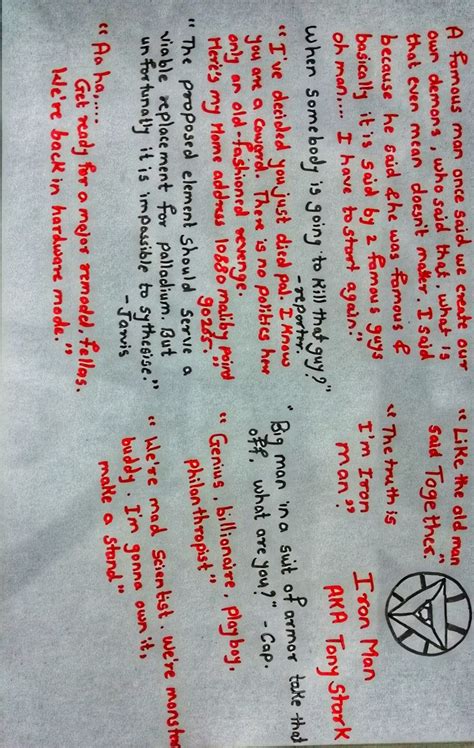 A famous man once said we create our
own demons, who said that, what is
that even mean doesn't matter. I said
because he said & he was famous &
basically it is said by 2 famous guys
oh man.... I have to start again."
When somebody is going to kill that guy?"
- reporter.
"I've decided you just died pal. I know
you are a coward. There is no politics her
only an old-fashioned revenge.
Here's my Home address 10880 maliby poind
90265."
"The proposed element should serve a
viable replacement for palladium. But
unfortunatly it is impassible to sythesise."
- Jarvis
"Aa ha,....
Get ready for a major remodd, fellas.
We're back in hardware mode."
"Like the old man
said Together."
"The truth is
I'm Iron
man."
Iron Man
AKA Tony Stark
"Big man in a suit of armor take that
off, what are you?" - Cap.
"Genius, billionaire, playboy,
philanthropist"
"We're mad scientist. we're monster
buddy. I'm gonna own it,
make a stand"